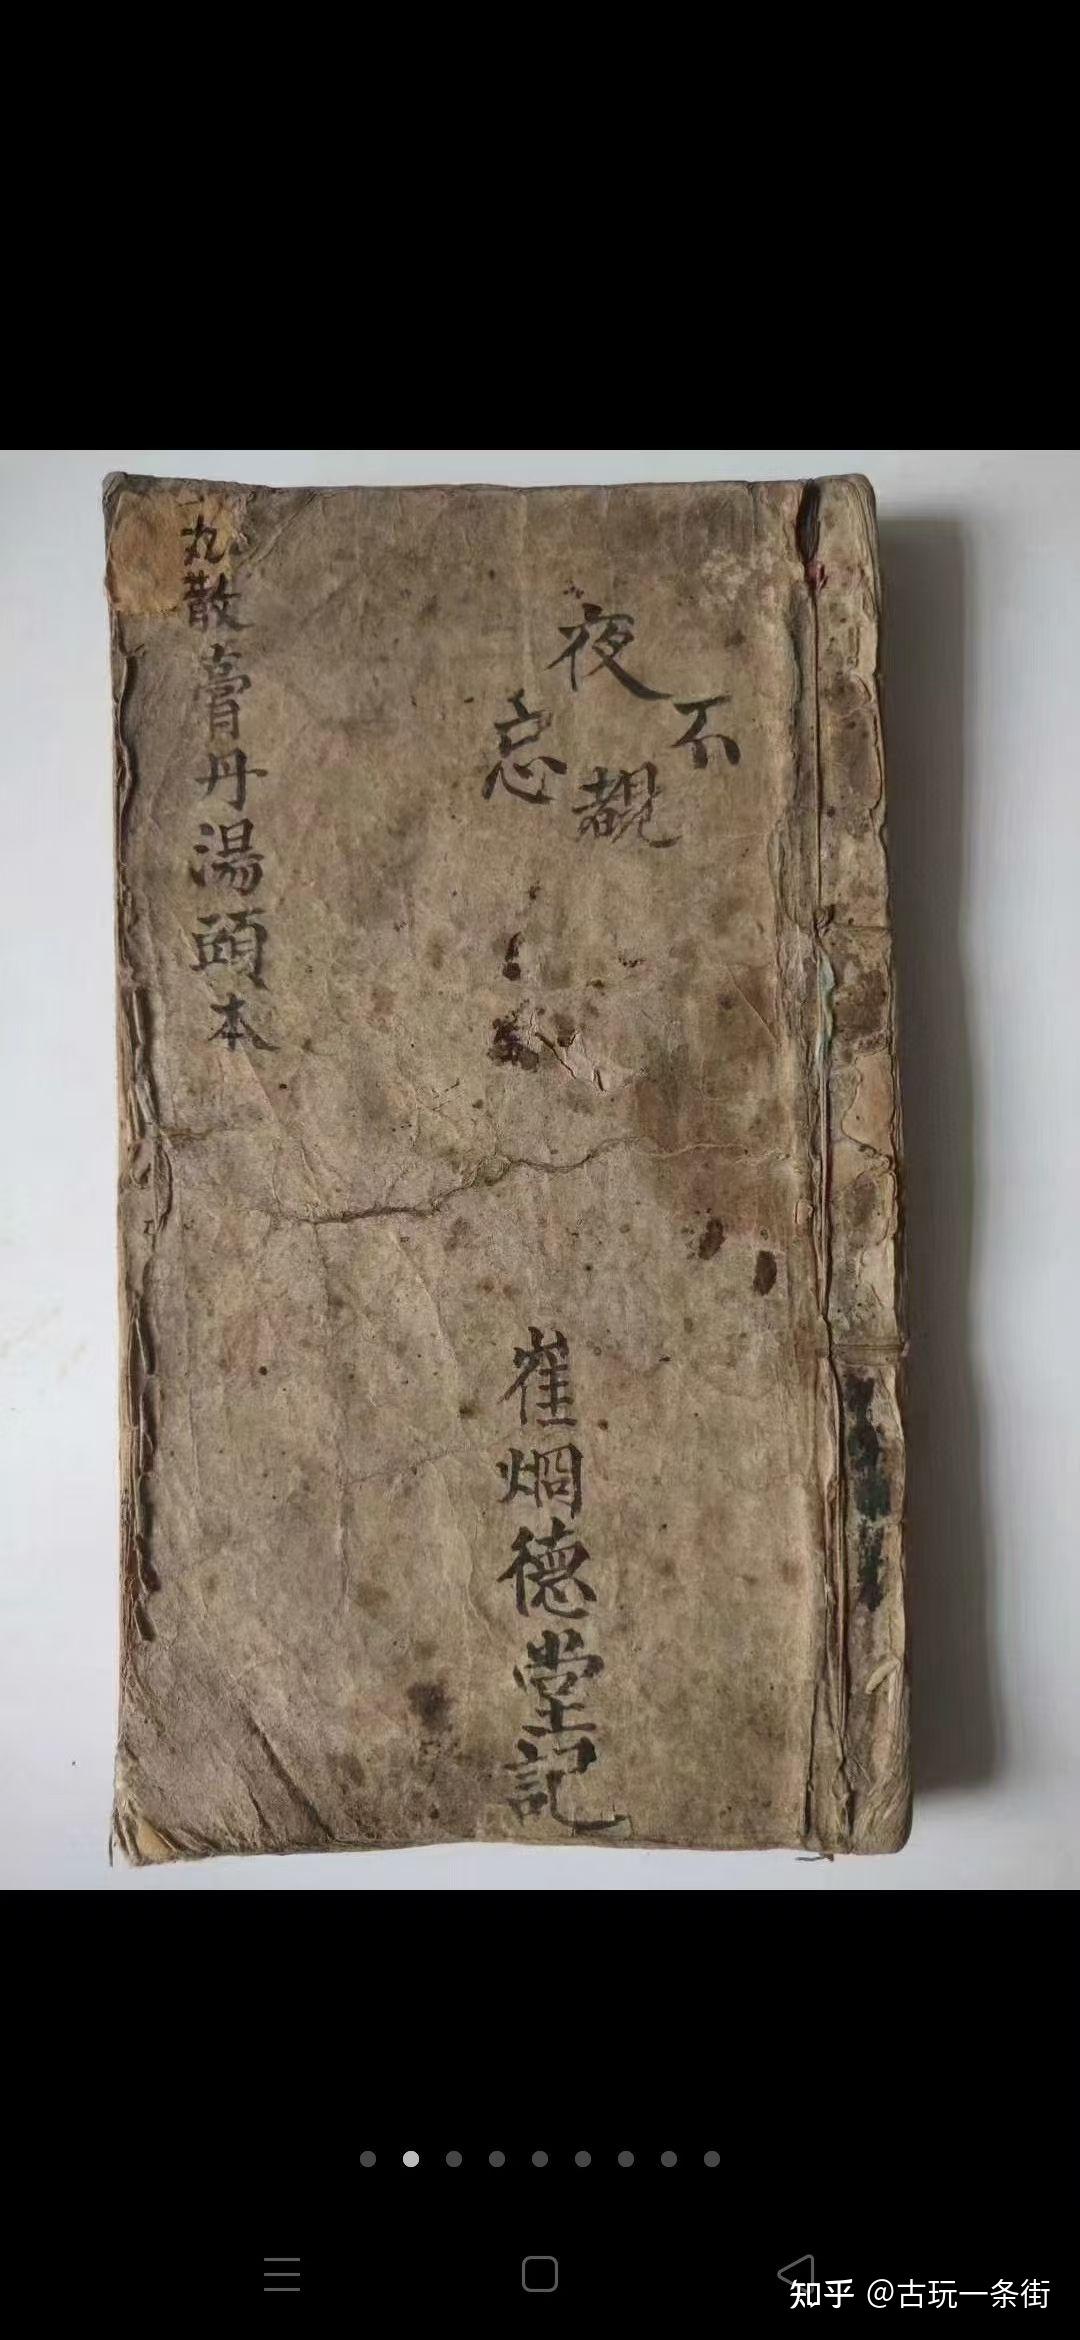 夜
不
忘
覩
丸散膏丹湯頭本
崔烱德堂記
知乎 @古玩一条街